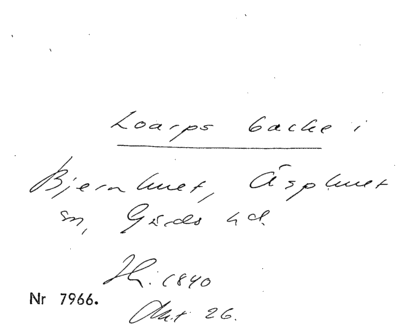 Loarps backe i
Bjernhuet, Äsphuet
sn, Gärds hd.
Hi. 1840
Nr 7966.
Akt 26.